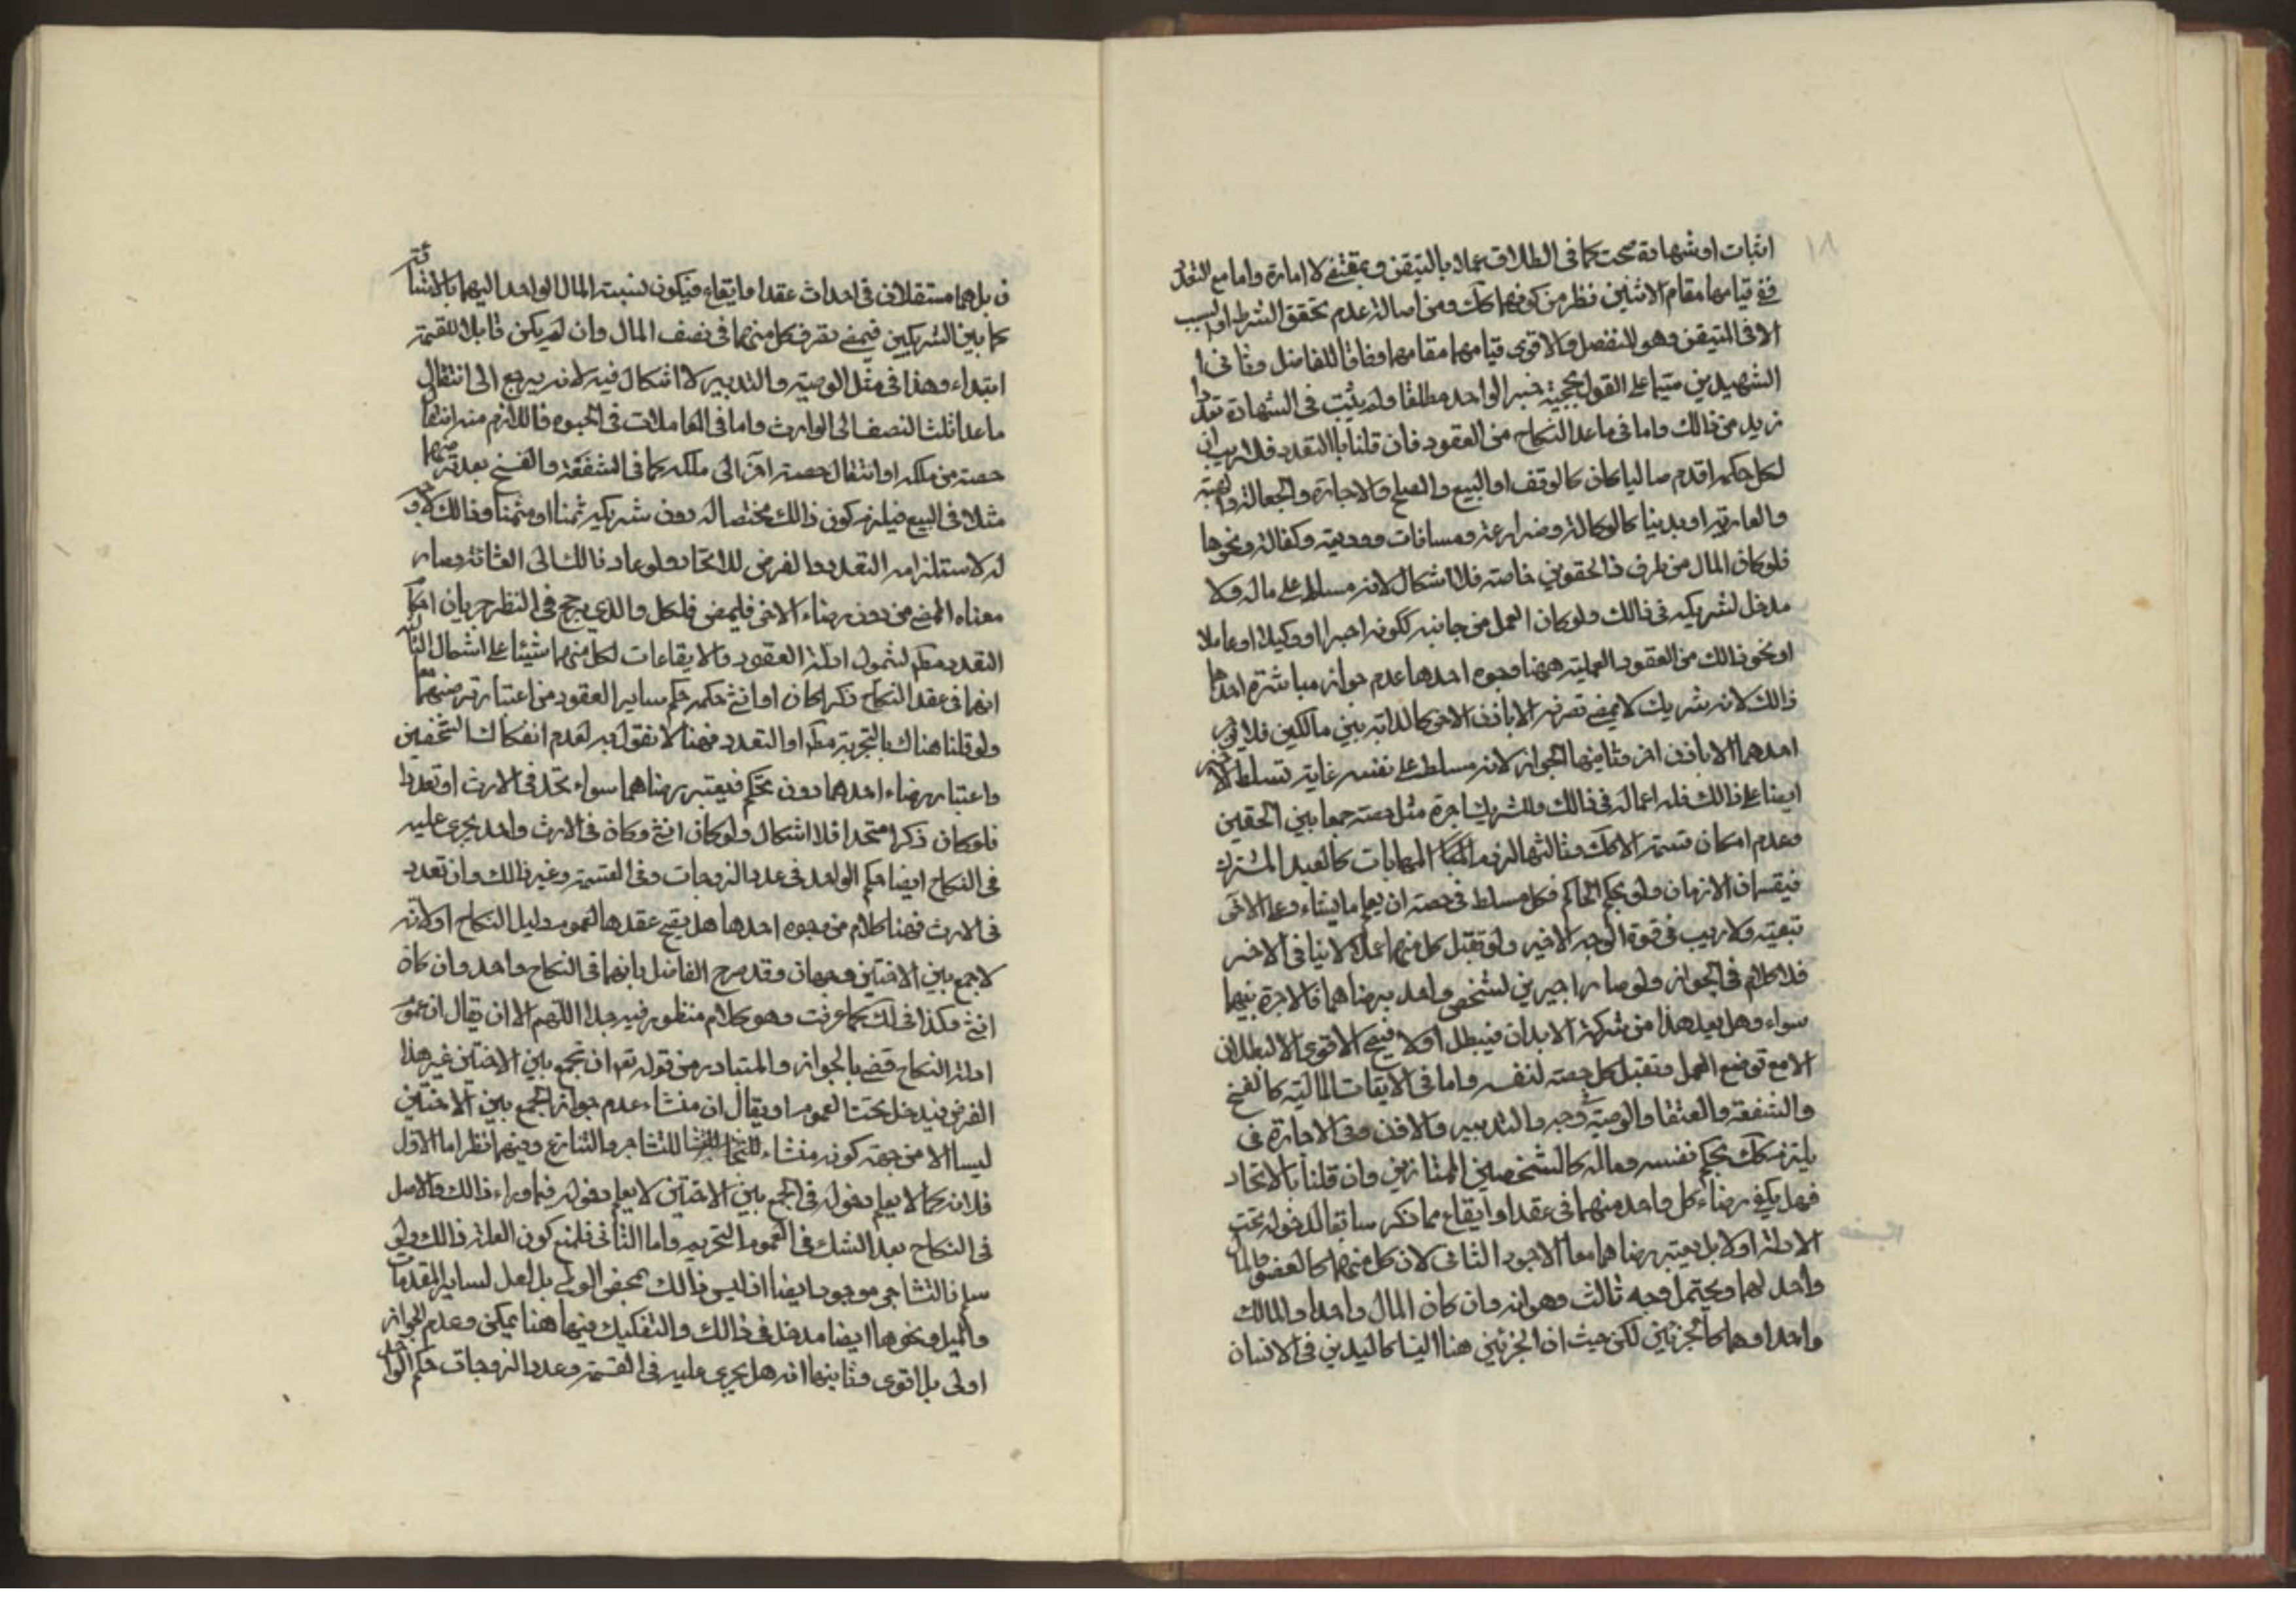 ١٨
اثبات او شهادة صحت كما في الطلاق عملا بالمتيقن وبمقتضى الامارة واما مع التعدد
ففي قيامهما مقام الاثنين نظر من كونهما كك ومن اصالة عدم تحقق الشرط او السبب
الا في المتيقن وهو المنفصل والاقوى قيامهما مقامهما وفاقا للفاضل وثاني
الشهيدين سيما على القول بحجية خبر الواحد مطلقا ولم يثبت في الشهادة تعدد
ازيد من ذالك واما في ما عدا النكاح من العقود فان قلنا باالتعدد فلا ريب ان
لكل حكمه اقدم ماليا كان كالوقف او البيع والصلح والاجارة والجعالة والهبة
والعارية او بدنيا كالوكالة ومزارعة ومساقات ووديعة وكفالة ونحوها
فلو كان المال من طرف ذالحقوين خاصة فلا اشكال لانه مسلط على ماله ولا
مدخل لشريكه في ذالك ولو كان العمل من جانبه ككونه اجيرا او وكيلا او عاملا
او نحو ذالك من العقود العملية فهنا وجوه احدها عدم جواز مباشرة احدهما
ذالك لانه شريك لا يمضي تصرفه الا باذن الاخر كالدابة بين مالكين فلا يوجر
احدهما الا باذن الاخر وثانيها الجواز لانه مسلط على نفسه غاية تسلط الاخر
ايضا على ذالك فله اعماله في ذالك وللشريك اجرة مثل حصته جمعا بين الحقين
وعدم امكان قسمة الا كك وثالثها لزوم المهايات كالعبد المشترك
فيقسمان الازمان ولو بحكم الحاكم فكل مسلط في حصته ان يعمل ما يشاء وعلى الاخر
تبعيته ولا ريب في قوة الوجه الاخير ولو تقبل كل منهما عملا لا ينافي الاخر
فلا كلام في الجواز ولو صارا اجيرين لشخص واحد برضاهما فالاجرة بينهما
سواء وهل يعد هذا من شركة الابدان فيبطل او لا فيصح الاقوى الا البطلان
الا مع توضيع العمل وتقبل كل حصته لنفسه واما في الايقاعات المالية كالفسخ
والشفعة والعتق والوصية وجه والتدبير والاذن وفي الاجازة في
يلتزم كك بحكم نفسه وماله كالشخصين الممتازين وان قلنا بالاتحاد
فهل يكفي رضاء كل واحد منهما في عقد او ايقاع مما ذكر سابقا لدخوله تحت
الادلة او لا بل يعتبر رضاهما معا الاجود الثاني لان كل منهما كالعضو والمال
واحد لهما ويحتمل وجه ثالث وهو انه وان كان المال واحدا والمالك
واحدا وهما كالجزئين لكن حيث ان الجزئين هنا ليسا كاليدين في الانسان
ن بل هما مستقلان في احداث عقد او ايقاع فيكون نسبة المال الواحد اليهما بالاشاعة
كما بين الشريكين فيمضي تصرف كل منهما في نصف المال وان لم يكن قابلا للقسمة
ابتداء وهذا في مثل الوصية والتدبير لا اشكال فيه لانه يرجع الى انتقال
ما عدا ثلث النصف الى الوارث واما في المعاملات في الحيوة فاللازم منه انتقال
حصته من ملكه او انتقال حصة اخر الى ملكه كما في الشفعة والفسخ بعد شرائهما
مثلا في البيع فيلزم كون ذالك مختصا له دون شريكه ثمنا او مثمنا وذالك لا وجه
له لاستلزامه التعدد والفرض للاتحاد ولو عاد ذالك الى الشائنة وصار
معناه المضي من دون رضاء الاخر فليمض فلكل والذي يرجح في النظر جريان احكام
التعدد مط لشمول ادلة العقود والايقاعات لكل منهما سيما على اشمال الثالثة
انهما في عقد النكاح ذكرا كان او انثى حكمه حكم ساير العقود من اعتبار رضيهما
ولو قلنا هناك بالتجزية مط او التعدد فهنا لا نقول به لعدم انفكاك الشخصين
واعتبار رضاء احدهما دون تحكم فيعتبر رضاهما سواء اتحد في الارث او تعدد
فلو كان ذكرا متحدا فلا اشكال ولو كان انثى وكان في الارث واحد يجري عليه
في النكاح ايضا حكم الواحد في عدد الزوجات وفي القسمة وغير ذالك وان تعدد
في الارث فهنا كلام من وجوه احدها هل يصح عقدها لعموم دليل النكاح او لانه
لا جمع بين الاختين وجهان وقد صرح الفاضل بانهما في النكاح واحد وان كان
انثى وكذا في لك كما عرفت وهو كلام منظور فيه جدا اللهم الا ان يقال ان عموم
ادلة النكاح قضى بالجواز والمتبادر من قوله تع ان تجمعوا بين الاختين غير هذا
الفرض فيدخل تحت العموم او يقال ان منشاء عدم جواز الجمع بين الاختين
ليسا الا من جهة كونه منشاء للتشاجر والتنازع وفيهما نظر اما الاول
فلانه كما لا يعلم دخوله في الجمع بين الاختين لا يعلم دخوله فيما وراء ذالك والاصل
في النكاح بعد الشك في العموم التحريم واما الثاني فلمنع كون العلة ذالك ولو
سلم فالتشاجر موجود ايضا اذ ليس ذالك بمحض الوطي بل لعل لساير المقدمات
والميل ونحوها ايضا مدخل في ذالك والتفكيك فيهما هنا ممكن وعدم الجواز
اولى بل اقوى وثانيهما انه هل يجري عليه في القسمة وعدد الزوجات حكم الواحد